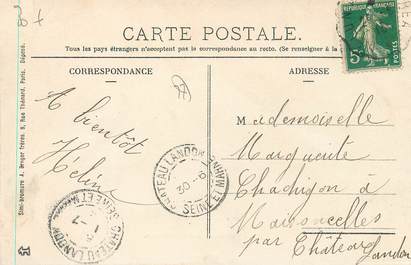 CARTE POSTALE.
Tous les pays étrangers n'acceptent pas la correspondance au recto. (Se renseigner à la
CORRESPONDANCE
ADRESSE
REPUBLIQUE FRANÇAISE
5c
POSTES
A bientôt
Héline
Mademoiselle
Marguerite
Chachigon à
Maisoncelles
par Château
Landon
CHATEAU LANDON
30-6
SEINE ET MARNE
CHATEAU LANDON
1-7
SEINE ET MARNE
Simi-bromure A. Breger frères, 9, Rue Thénard. Paris. Déposé.